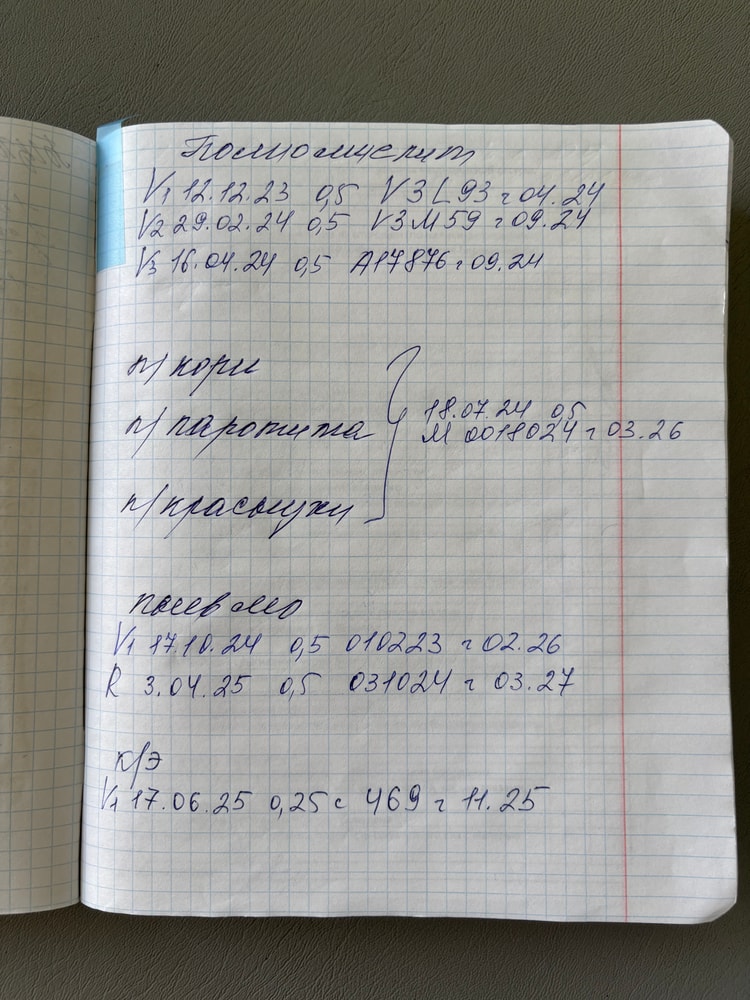 Полиомиелит
V1 12.12.23 0,5 V3L93 г 04.24
V2 29.02.24 0,5 V3M59 г 09.24
V3 16.04.24 0,5 A17876 г 09.24
п/кори
п/паротита
п/краснухи
18.07.24 0,5
М 0018024 г 03.26
пневмо
V1 17.10.24 0,5 010223 г 02.26
R 3.04.25 0,5 031024 г 03.27
к/э
V1 17.06.25 0,25 с 469 г 11.25